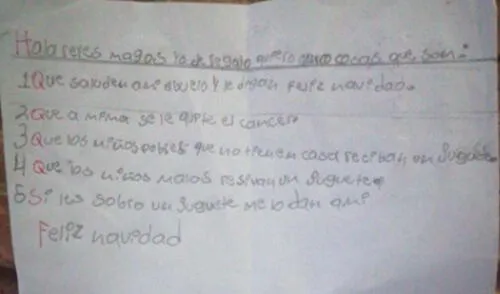 Hola reies magos yo de regalo quiero cinco cosas que son:
1 Que saluden a mi abuelo y le digan Feliz navidad.
2 Que a mi mama se le quite el cancer
3 Que los niños pobres que no tienen casa reciban un Juguete
4 Que los niños malos resivan un Juguete
5 Si les sobro un Juguete me lo dan a mi
Feliz navidad